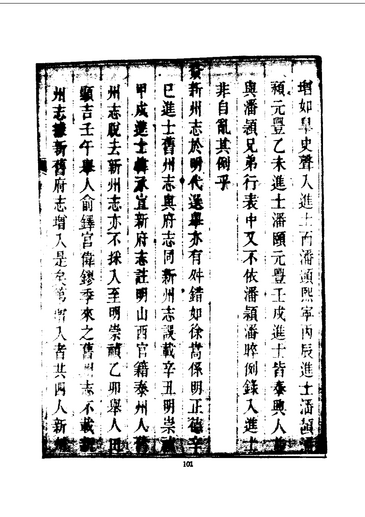 增如皋史聲入進士而潘頴熙寧丙辰進士潘
頴元豐乙未進士潘頤元豐壬戌進士皆泰興人
與潘頴兄弟行表中又不依潘頴潘晬例錄入進士
非自亂其例乎
新州志於明代選舉亦有舛錯如徐嵩係明正德辛
巳進士舊州志與府志同新州志誤載辛丑明崇禎
甲戌進士韓承宣新府志註明山西官籍泰州人舊
州志脫去新州志亦不採入至明崇禎乙卯舉人田
顯吉壬午舉人俞鐸官偉鏐季來之舊州志不載新
州志據新舊府志增入是矣第增入者共四人新
101